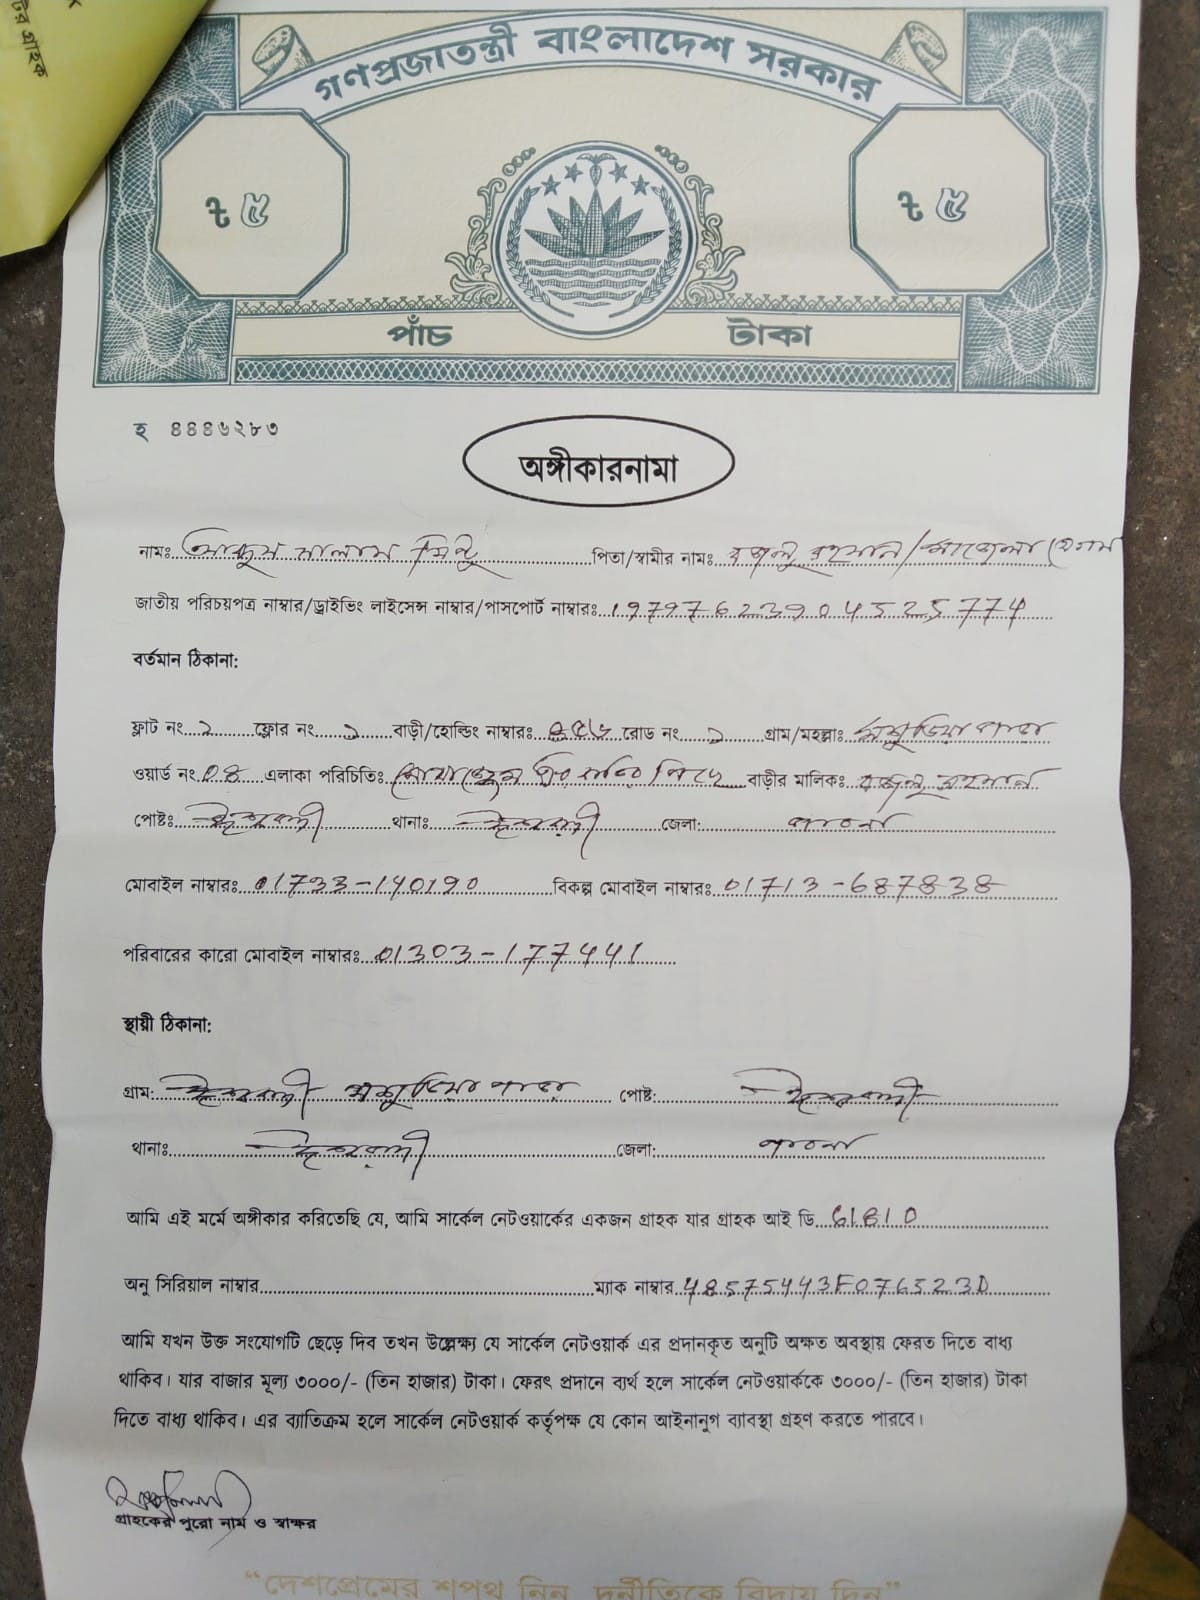 টের গ্রাহক
গণপ্রজাতন্ত্রী বাংলাদেশ সরকার
৳ ৫ ৳ ৫
পাঁচ টাকা
হ ৪৪৪৬২৮৩
অঙ্গীকারনামা
নামঃ পিতা/স্বামীর নামঃ রহমান/
জাতীয় পরিচয়পত্র নাম্বার/ড্রাইভিং লাইসেন্স নাম্বার/পাসপোর্ট নাম্বারঃ 19797623904525774
বর্তমান ঠিকানা:
ফ্লাট নং ২ ফ্লোর নং ১ বাড়ী/হোল্ডিং নাম্বারঃ ৪৫৬ রোড নং ১ গ্রাম/মহল্লাঃ পাড়া
ওয়ার্ড নং 04 এলাকা পরিচিতিঃ বাড়ীর মালিকঃ রহমান
পোষ্টঃ ঈশ্বরদী থানাঃ ঈশ্বরদী জেলা: পাবনা
মোবাইল নাম্বারঃ 01733-140190 বিকল্প মোবাইল নাম্বারঃ 01713-687838
পরিবারের কারো মোবাইল নাম্বারঃ 01303-177441
স্থায়ী ঠিকানা:
গ্রাম: ঈশ্বরদী পাড়া পোষ্ট: ঈশ্বরদী
থানাঃ ঈশ্বরদী জেলা: পাবনা
আমি এই মর্মে অঙ্গীকার করিতেছি যে, আমি সার্কেল নেটওয়ার্কের একজন গ্রাহক যার গ্রাহক আই ডি 61810
অনু সিরিয়াল নাম্বার ম্যাক নাম্বার 48575443F076523D
আমি যখন উক্ত সংযোগটি ছেড়ে দিব তখন উল্লেক্ষ্য যে সার্কেল নেটওয়ার্ক এর প্রদানকৃত অনুটি অক্ষত অবস্থায় ফেরত দিতে বাধ্য
থাকিব। যার বাজার মূল্য ৩০০০/- (তিন হাজার) টাকা। ফেরৎ প্রদানে ব্যর্থ হলে সার্কেল নেটওয়ার্ককে ৩০০০/- (তিন হাজার) টাকা
দিতে বাধ্য থাকিব। এর ব্যাতিক্রম হলে সার্কেল নেটওয়ার্ক কর্তৃপক্ষ যে কোন আইনানুগ ব্যাবস্থা গ্রহণ করতে পারবে।
গ্রাহকের পুরো নাম ও স্বাক্ষর
“দেশপ্রেমের শপথ নিন, দুর্নীতিকে বিদায় দিন”